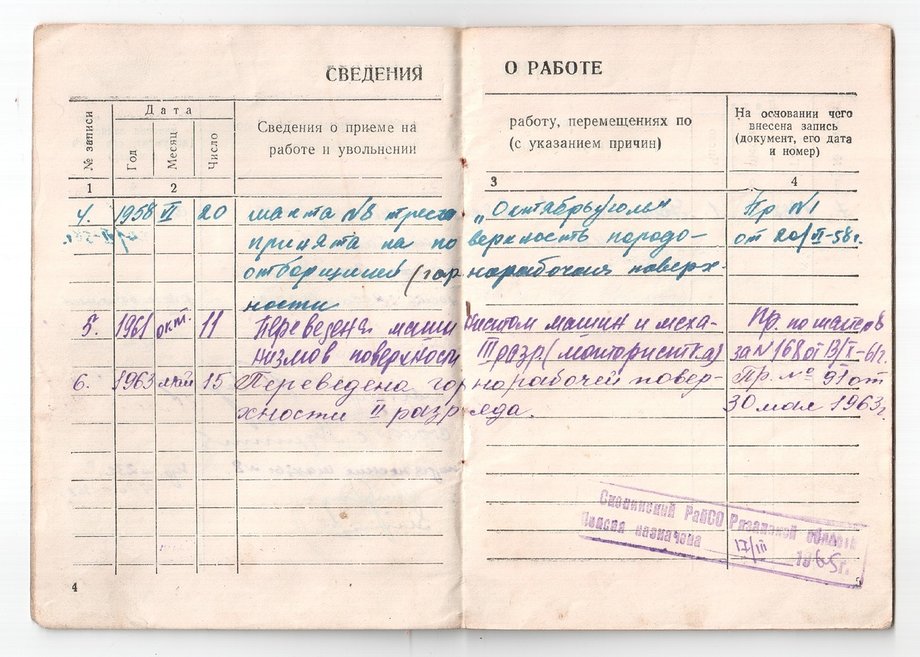 СВЕДЕНИЯ О РАБОТЕ
№ записи
Дата
Год
Месяц
Число
Сведения о приеме на работу, перемещениях по
работе и увольнении (с указанием причин)
На основании чего
внесена запись
(документ, его дата
и номер)
1 2 3 4
4. 1958 II 20 шахта №8 треста „Октябрьуголь" Пр №1
принята на поверхность породо- от 20/II-58г.
отборщицей (горнорабочая поверх-
ности
5. 1961 окт. 11 Переведена машинистом машин и меха- Пр. по шахте 8
низмов поверхности III разр (мотористка) за №168 от 13/X-61г.
6. 1963 май 15 Переведена горнорабочей повер- Пр. № 91 от
хности II разряда. 30 мая 1963г.
Скопинский РайСО Рязанской области
Пенсия назначена 17/III 1965г.
4